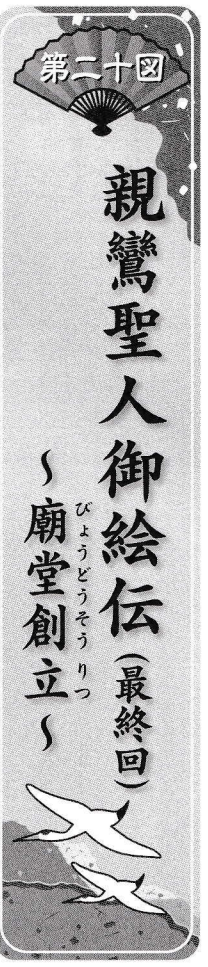 第二十図
親鸞聖人御絵伝(最終回)
~廟堂創立~
びょうどうそうりつ